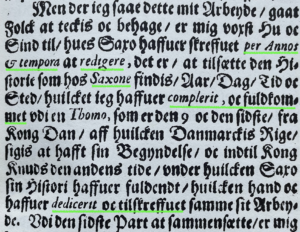 Men der ieg saae dette mit Arbeyde / gaat
Folck at teckis oc behage / er mig vorst Hu oc
Sind til / hues Saxo haffuer skreffuet per Annos
& tempora at redigere, det er / at tilsætte den Hi-
storie som hos Saxone findis / Aar / Dag / Tid oc
Sted / huilcket ieg haffuer complerit, oc fuldkom-
met vdi en Thomo, som er den 9 oc den sidste / fra
Kong Dan / aff huilcken Danmarckis Rige /
sigis at hafft sin Begyndelse / oc indtil Kong
Knuds den andens tide / vnder huilcken Saxo
sin Histori haffuer fuldendt / huilcken hand oc
haffuer dedicerit oc tilskreffuet samme sit Arbey-
de. Vdi den sidste Part at sammensætte / er mig